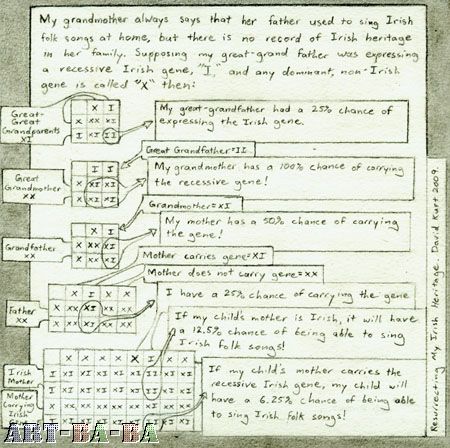 My grandmother always says that her father used to sing Irish
folk songs at home, but there is no record of Irish heritage
in her family. Supposing my great-grand father was expressing
a recessive Irish gene, "I," and any dominant, non-Irish
gene is called "X" then:
Great-
Great
Grandparents
XI
X I
X XX XI
I XI II
My great-grandfather had a 25% chance of
expressing the Irish gene.
Great Grandfather=II
Great
Grandmother
XX
I I
X XI XI
X XI XI
My grandmother has a 100% chance of carrying
the recessive gene!
Grandmother=XI
Grandfather
XX
X I
X XX XI
X XX XI
My mother has a 50% chance of carrying
the gene!
Mother carries gene=XI
Mother does not carry gene=XX
Father
XX
X I X X
X XX XI XX XX
X XX XI XX XX
I have a 25% chance of carrying the gene
If my child's mother is Irish, it will have
a 12.5% chance of being able to sing
Irish folk songs!
Irish
Mother
Mother
Carrying
Irish
X X X X X I X X
I XI XI XI XI XI II XI XI
I XI XI XI XI XI II XI XI
If my child's mother carries the
recessive Irish gene, my child will
have a 6.25% chance of being able
to sing Irish folk songs!
Resurrecting My Irish Heritage. David Kurt 2009.
ART-BA-BA